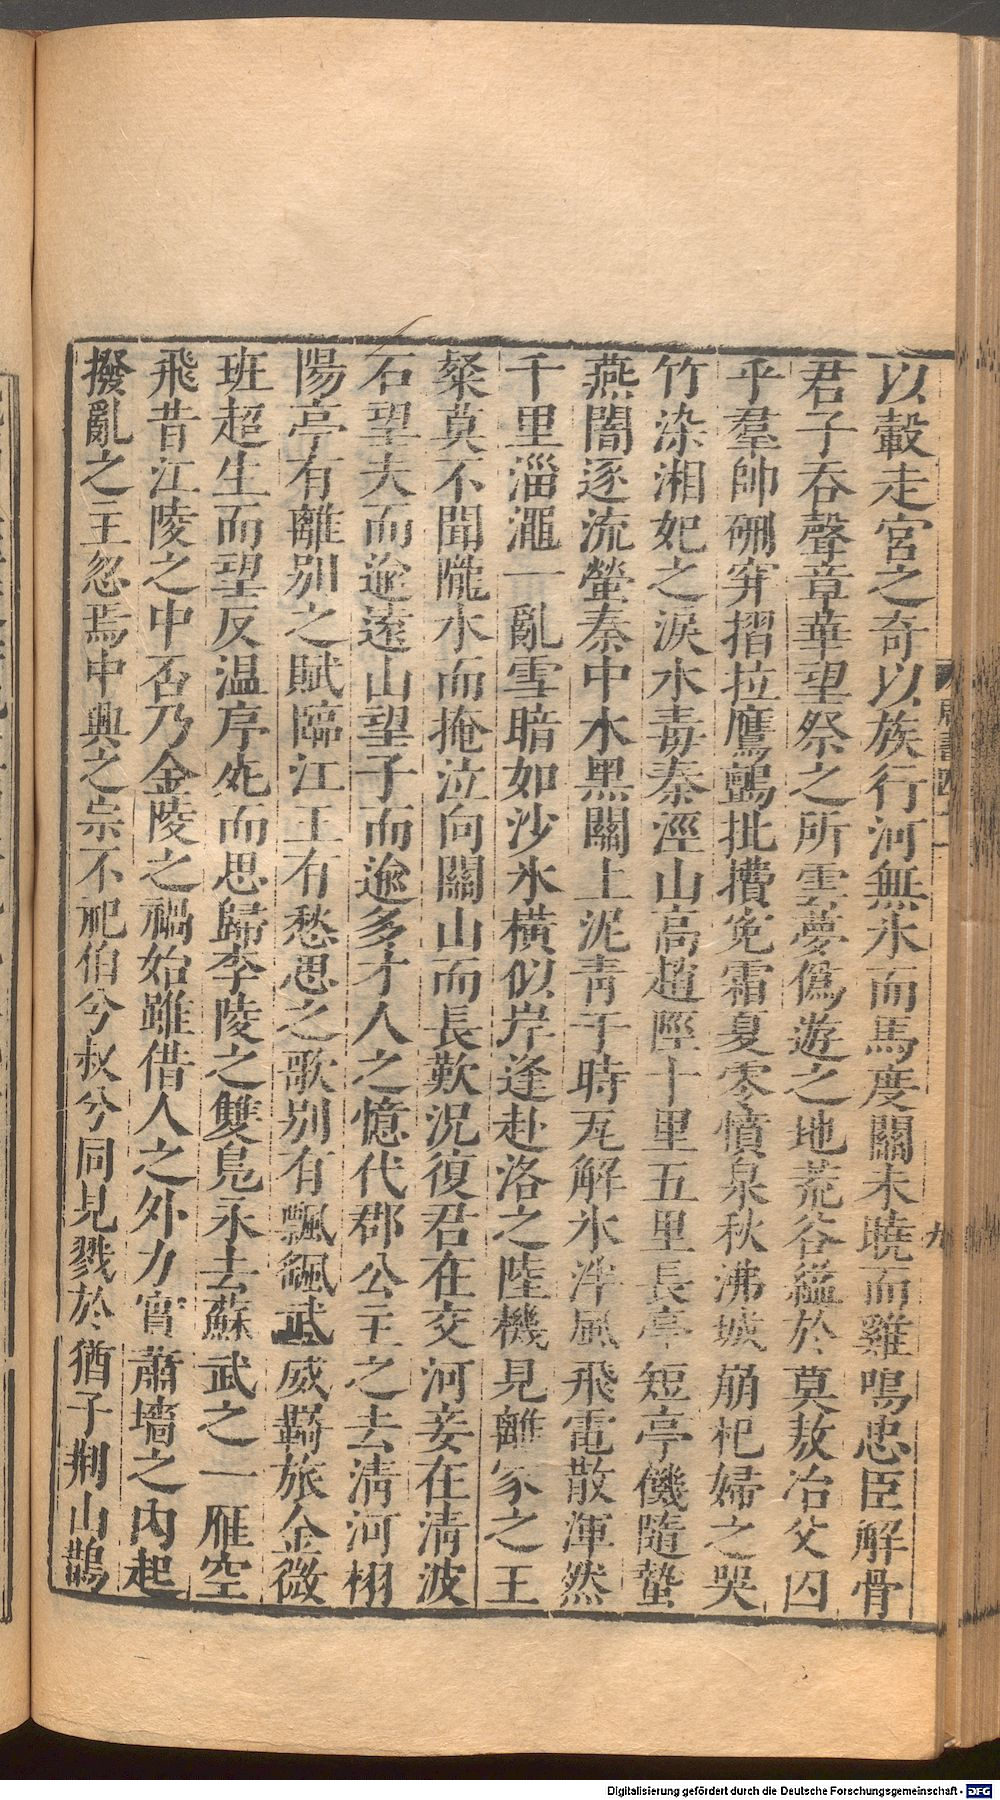 以轂走宮之奇以族行河無氷而馬度關未曉而雞鳴忠臣解骨
君子吞聲章華望祭之所雲夢僞遊之地荒谷縊於莫敖冶父囚
乎羣帥硎穽摺拉鷹鸇批㩓寃霜夏零憤泉秋沸城崩杞婦之哭
竹染湘妃之淚水毒秦涇山高趙陘十里五里長亭短亭饑隨蟄
燕闇逐流螢秦中水黑關上泥靑于時瓦解氷泮風飛電散渾然
千里淄澠一亂雪暗如沙氷橫似岸逢赴洛之陸機見離家之王
粲莫不聞隴水而掩泣向關山而長歎況復君在交河妾在淸波
石望夫而逾遠山望子而逾多才人之憶代郡公主之去淸河栩
陽亭有離別之賦臨江王有愁思之歌別有飄颻武威羇旅金微
班超生而望反温序死而思歸李陵之雙鳧永去蘇武之一雁空
飛昔江陵之中否乃金陵之禍始雖借人之外力實蕭墻之內起
撥亂之主忽焉中興之宗不祀伯兮叔兮同見戮於猶子荆山鵲
周書四十一
九
Digitalisierung gefördert durch die Deutsche Forschungsgemeinschaft - DFG